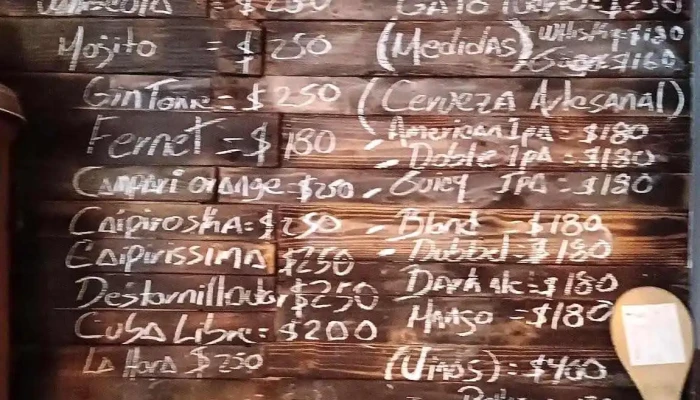 = $250
Mojito = $ 250
Gin Tonic = $ 250
Fernet = $ 180
Campari orange = $250
Caipiroska = $ 250
Caipirissima $250
Destornillador $250
Cuba Libre = $200
La Hora $250
GATO = $250
(Medidas) Whisky = $180
$160
(Cerveza Artesanal)
- American Ipa = $180
- Doble Ipa = $180
- Guicy Ipa = $180
- Blond = $180
- Dubbel = $180
Dark ale = $180
Mango = $180
(Vinos) = $400